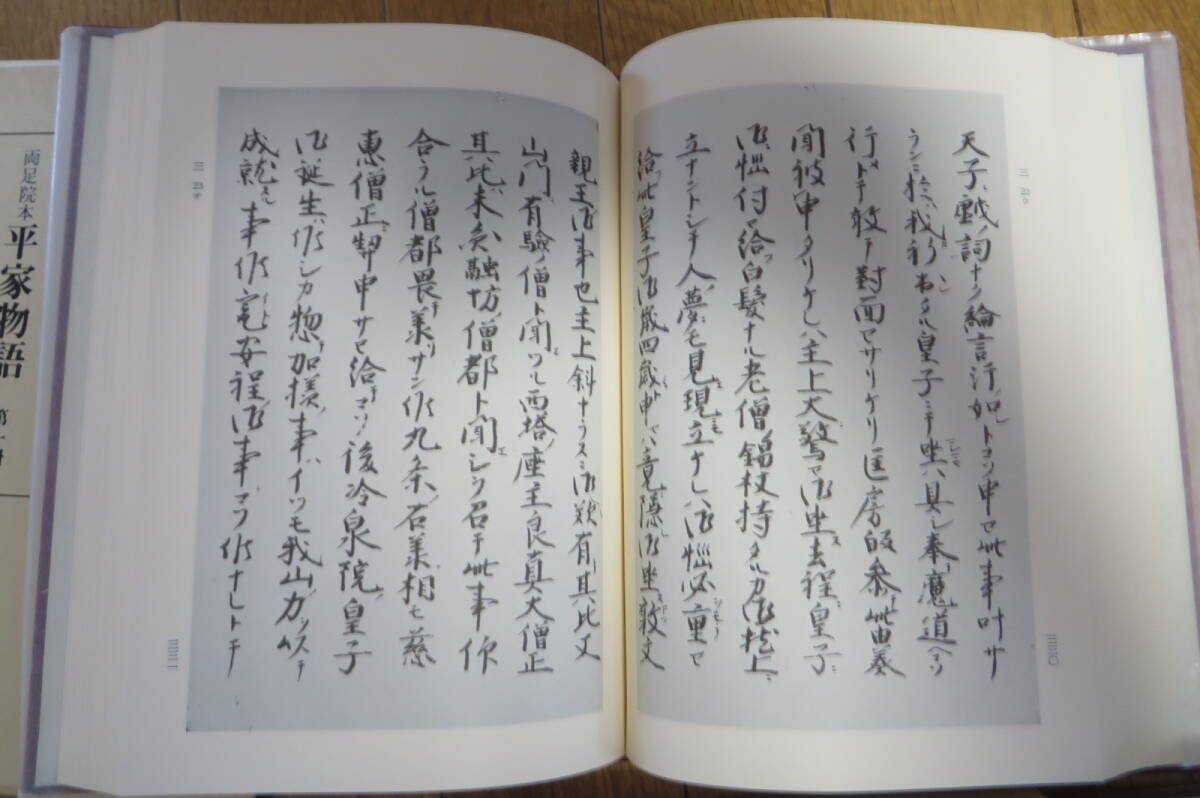 天子ニ戯ノ詞ナシ綸言汗ノ如トコソ申セ此事叶サ
ランニ於ハ我祈出タル皇子ニテ坐ハ具シ奉魔道ヘコソ
行ドテ敢テ對面モセサリケリ匡房皈参此由奏
聞被申タリケレハ主上大驚セ御坐去程ニ皇子
御悩付セ給フ白髪ナル老僧ノ錫杖持タルカ御枕上ニ
立ナントシテ人ノ夢ニモ見現ニモ立ケレハ御悩必重セ
給此皇子御歳四歳ト申ニハ竟隠御坐敦文
三 22ウ
三三〇
親王御事也主上斜ナラスニ御歎有其比又
山門ニ有驗ノ僧ト聞ツル西塔ノ座主良真大僧正
其比ハ未融坊ノ僧都ト聞エシヲ召テ此事仰
合ラル僧都畏テ奏サレ候九条ノ右相モ慈
恵僧正契申サセ給テコソ後冷泉院ノ皇子
御誕生ハ候シカ惣加様ノ事ハイツモ我山ノ力
成就スル事候安程ノ御事ニコソ候ナレトテ
三 23オ
三三一
両足院本
平家物語
第一冊